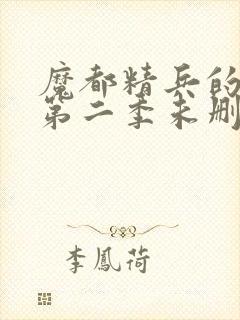 魔都精兵的
第二季未删
李鳳荷